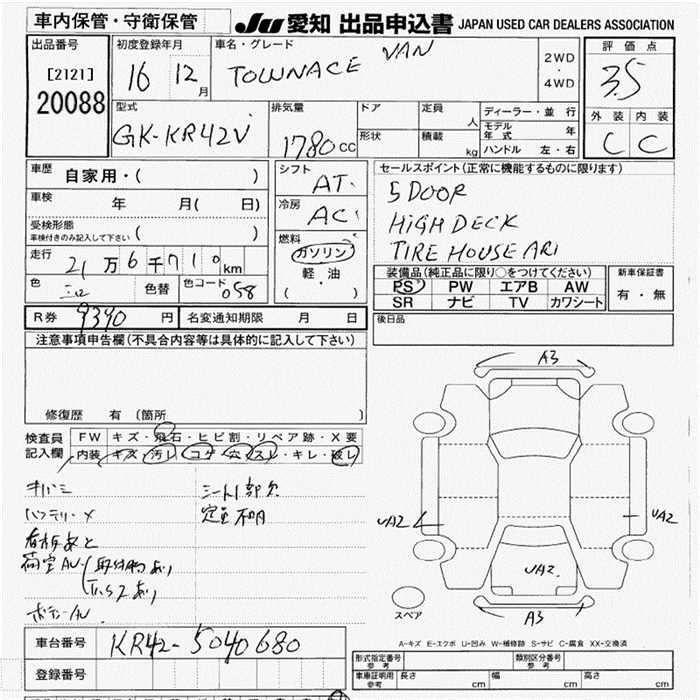 車内保管・守衛保管
JU 愛知 出品申込書 JAPAN USED CAR DEALERS ASSOCIATION
出品番号
[2121]
20088
初度登録年月
16 12 月
車名・グレード
TOWNACE VAN
2WD
・
4WD
評価点
3.5
外装 内装
C C
型式
GK-KR42V
排気量
1780 CC
ドア
形状
定員 人
積載 kg
ディーラー・並行
モデル年式 年
ハンドル 左・右
車歴 自家用・( )
車検 年 月( 日)
受検形態
車検付きのみ記入して下さい ( )
走行 21万6千710km
色 色替 色コード 058
シフト AT
冷房 AC
燃料
ガソリン
軽・油
( )
セールスポイント(正常に機能するものに限ります)
5 DOOR
HIGH DECK
TIRE HOUSE ARI
装備品(純正品に限り○をつけてください)
PS PW エアB AW
SR ナビ TV カワシート
新車保証書
有・無
R券 9390 円 名変通知期限 月 日
後日品
注意事項申告欄(不具合内容等は具体的に記入して下さい)
修復歴 有 (箇所 )
検査員記入欄
FW キズ・飛石・ヒビ割・リペア跡・X要
内装 キズ・汚レ・コゲ・穴・スレ・キレ・破レ
キバミ
シート1部欠
バッテリーメ
定員不明
看板あと
荷室AU
取付物あり
ボデーAU
A3
UA2
UA2
UA2
A3
スペア
A-キズ E-エクボ U-凹み W-補修跡 S-サビ C-腐食 XX-交換済
車台番号 KR42-5040680
登録番号
形式指定番号 参考
類別区分番号 参考
車庫証明用 参考 長さ cm 幅 cm 高さ cm